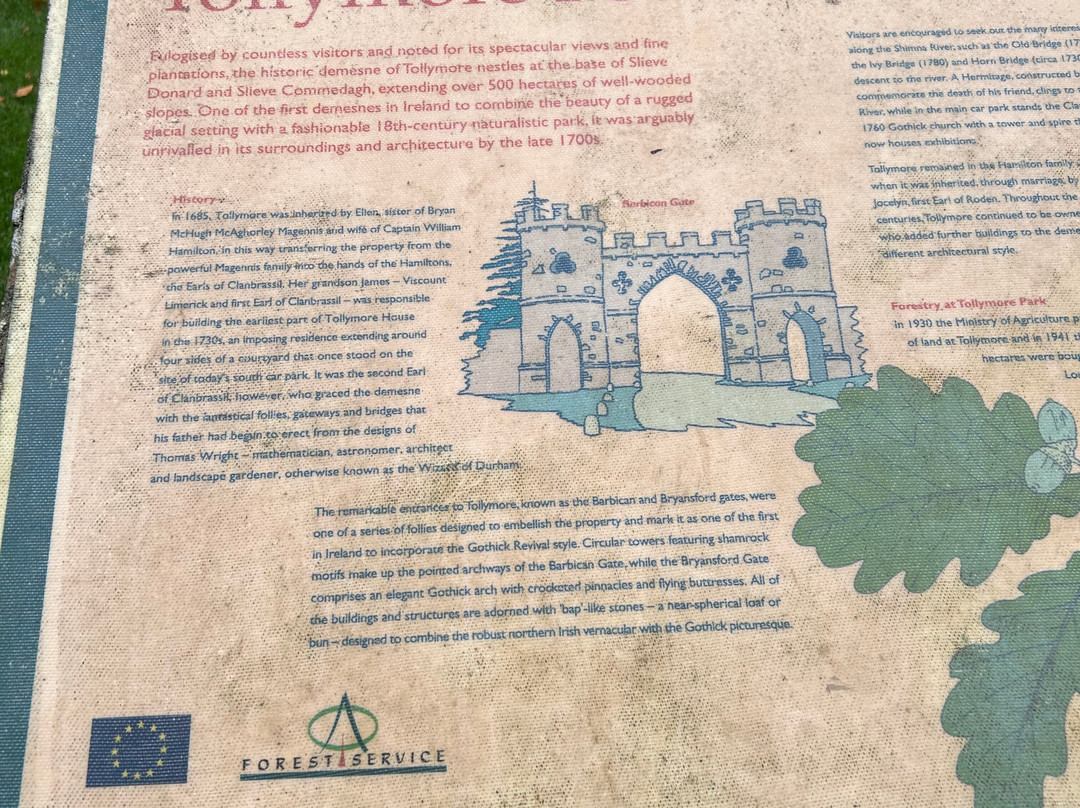 Tollymore
Eulogised by countless visitors and noted for its spectacular views and fine
plantations, the historic demesne of Tollymore nestles at the base of Slieve
Donard and Slieve Commedagh, extending over 500 hectares of well-wooded
slopes. One of the first demesnes in Ireland to combine the beauty of a rugged
glacial setting with a fashionable 18th-century naturalistic park, it was arguably
unrivalled in its surroundings and architecture by the late 1700s.
History
In 1685, Tollymore was inherited by Ellen, sister of Bryan
McHugh McAghorley Magennis and wife of Captain William
Hamilton, in this way transferring the property from the
powerful Magennis family into the hands of the Hamiltons,
the Earls of Clanbrassil. Her grandson James – Viscount
Limerick and first Earl of Clanbrassil – was responsible
for building the earliest part of Tollymore House
in the 1730s, an imposing residence extending around
four sides of a courtyard that once stood on the
site of today's south car park. It was the second Earl
of Clanbrassil, however, who graced the demesne
with the fantastical follies, gateways and bridges that
his father had begun to erect from the designs of
Thomas Wright – mathematician, astronomer, architect
and landscape gardener, otherwise known as the Wizard of Durham.
Barbican Gate
The remarkable entrances to Tollymore, known as the Barbican and Bryansford gates, were
one of a series of follies designed to embellish the property and mark it as one of the first
in Ireland to incorporate the Gothick Revival style. Circular towers featuring shamrock
motifs make up the pointed archways of the Barbican Gate, while the Bryansford Gate
comprises an elegant Gothick arch with crocketed pinnacles and flying buttresses. All of
the buildings and structures are adorned with 'bap'-like stones – a near-spherical loaf or
bun – designed to combine the robust northern Irish vernacular with the Gothick picturesque.
Visitors are encouraged to seek out the many
along the Shimna River, such as the Old Bridge
the Ivy Bridge (1780) and Horn Bridge (circa
descent to the river. A Hermitage, constructed
commemorate the death of his friend, clings to
River, while in the main car park stands the
1760 Gothick church with a tower and spire
now houses exhibitions.
Tollymore remained in the Hamilton family
when it was inherited, through marriage, by
Jocelyn, first Earl of Roden. Throughout the
centuries, Tollymore continued to be
who added further buildings to the
different architectural style.
Forestry at Tollymore Park
In 1930 the Ministry of Agriculture
of land at Tollymore and in 1941
hectares were
FOREST SERVICE